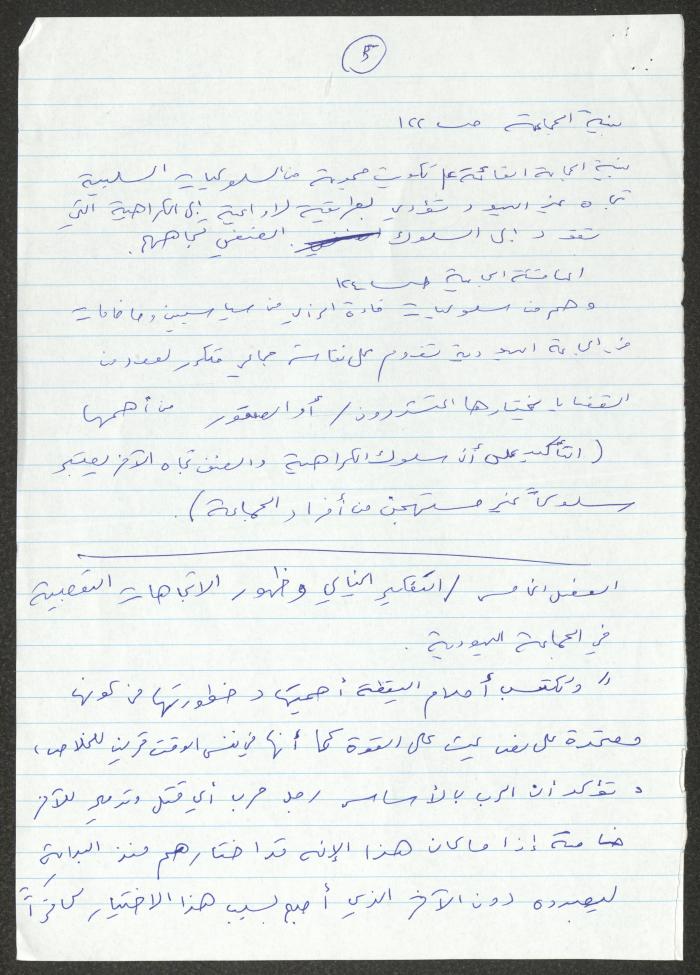 ٥
بنية الجماعة ص ١٢٢
بنية الجماعة القائمة على تكوين مجموعة من السلوكيات السلبية
تجاه غير اليهود تؤدي بطريقة لاواعية إلى الكراهية التي
تقود إلى السلوك العنفي تجاههم.
المناقشة الجماعية ص ١٢٤
وهم من سلوكيات قادة الرأي من سياسيين وحاخامات
في الجماعة اليهودية تقوم على نقاش جماعي متكرر لعدد من
القضايا يختارها المتشددون / أو الصقور من أهمها
(التأكيد على أن سلوك الكراهية والعنف تجاه الآخر يعتبر
سلوكاً غير مستهجن من أفراد الجماعة).
الفصل الخامس / التفكير الخيالي وظهور الاتجاهات التعصبية
في الجماعة اليهودية.
" وتكتسب أحلام اليقظة أهميتها وخطورتها من كونها
معتمدة على نص يحث على القوة كما أنها في نفس الوقت قرين للخلاص،
وتؤكد أن الرب بالأساس رجل حرب أي قتل وتدمير للآخر
خاصة إذا ما كان هذا الإله قد اختارهم منذ البداية
ليعبدوه دون الآخر الذي أصبح بسبب هذا الاختيار كافراً